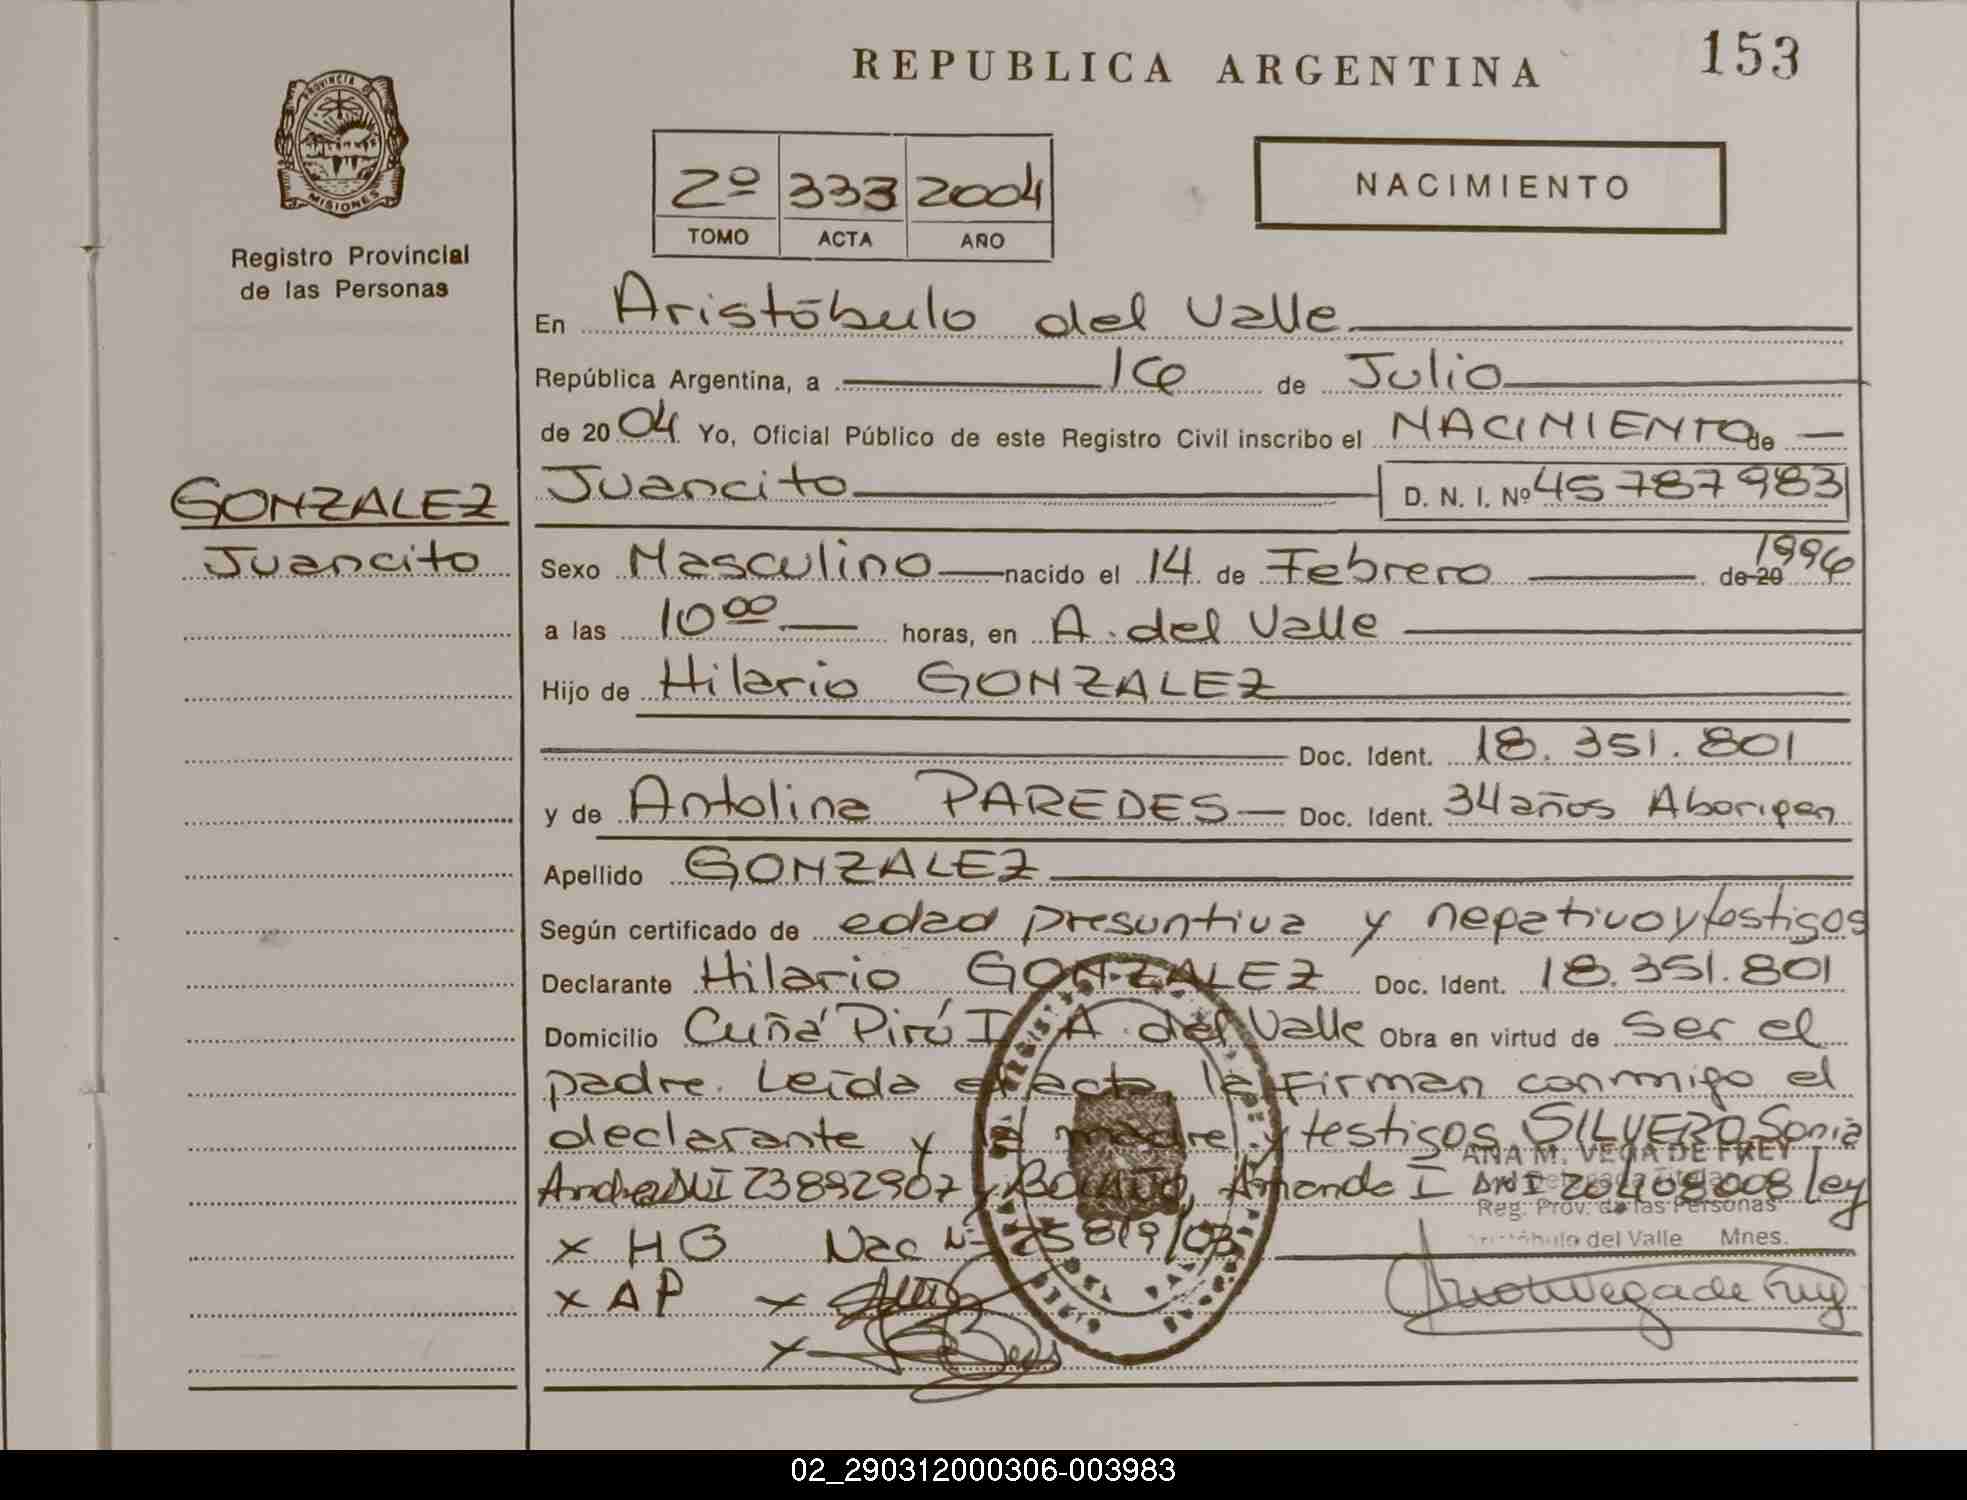 REPUBLICA ARGENTINA
153
PROVINCIA DE
MISIONES
Registro Provincial
de las Personas
2º 333 2004
TOMO ACTA AÑO
NACIMIENTO
En Aristóbulo del Valle
República Argentina, a 16 de Julio
de 2004 Yo, Oficial Público de este Registro Civil inscribo el NACIMIENTO de
GONZALEZ
Juancito
Juancito D. N. I. Nº 45787983
Sexo Masculino nacido el 14 de Febrero de 20 1996
a las 10⁰⁰ horas, en A. del Valle
Hijo de Hilario GONZALEZ
Doc. Ident. 18.351.801
y de Antolina PAREDES Doc. Ident. 34 años Aborigen
Apellido GONZALEZ
Según certificado de edad presuntiva y negativo y testigos
Declarante Hilario GONZALEZ Doc. Ident. 18.351.801
Domicilio Cuñá Pirú I A. del Valle Obra en virtud de ser el
padre. Leída el acta, la firman conmigo el
declarante y la madre y testigos SILVERO Sonia
Andrea DNI 23892907 y Amanda I DNI 20408008 ley
ANA M. VEGA DE FREY
Reg. Prov. de las Personas
del Valle Mnes.
x HG Nac Nº 25819/03
x AP x
x
02_290312000306-003983